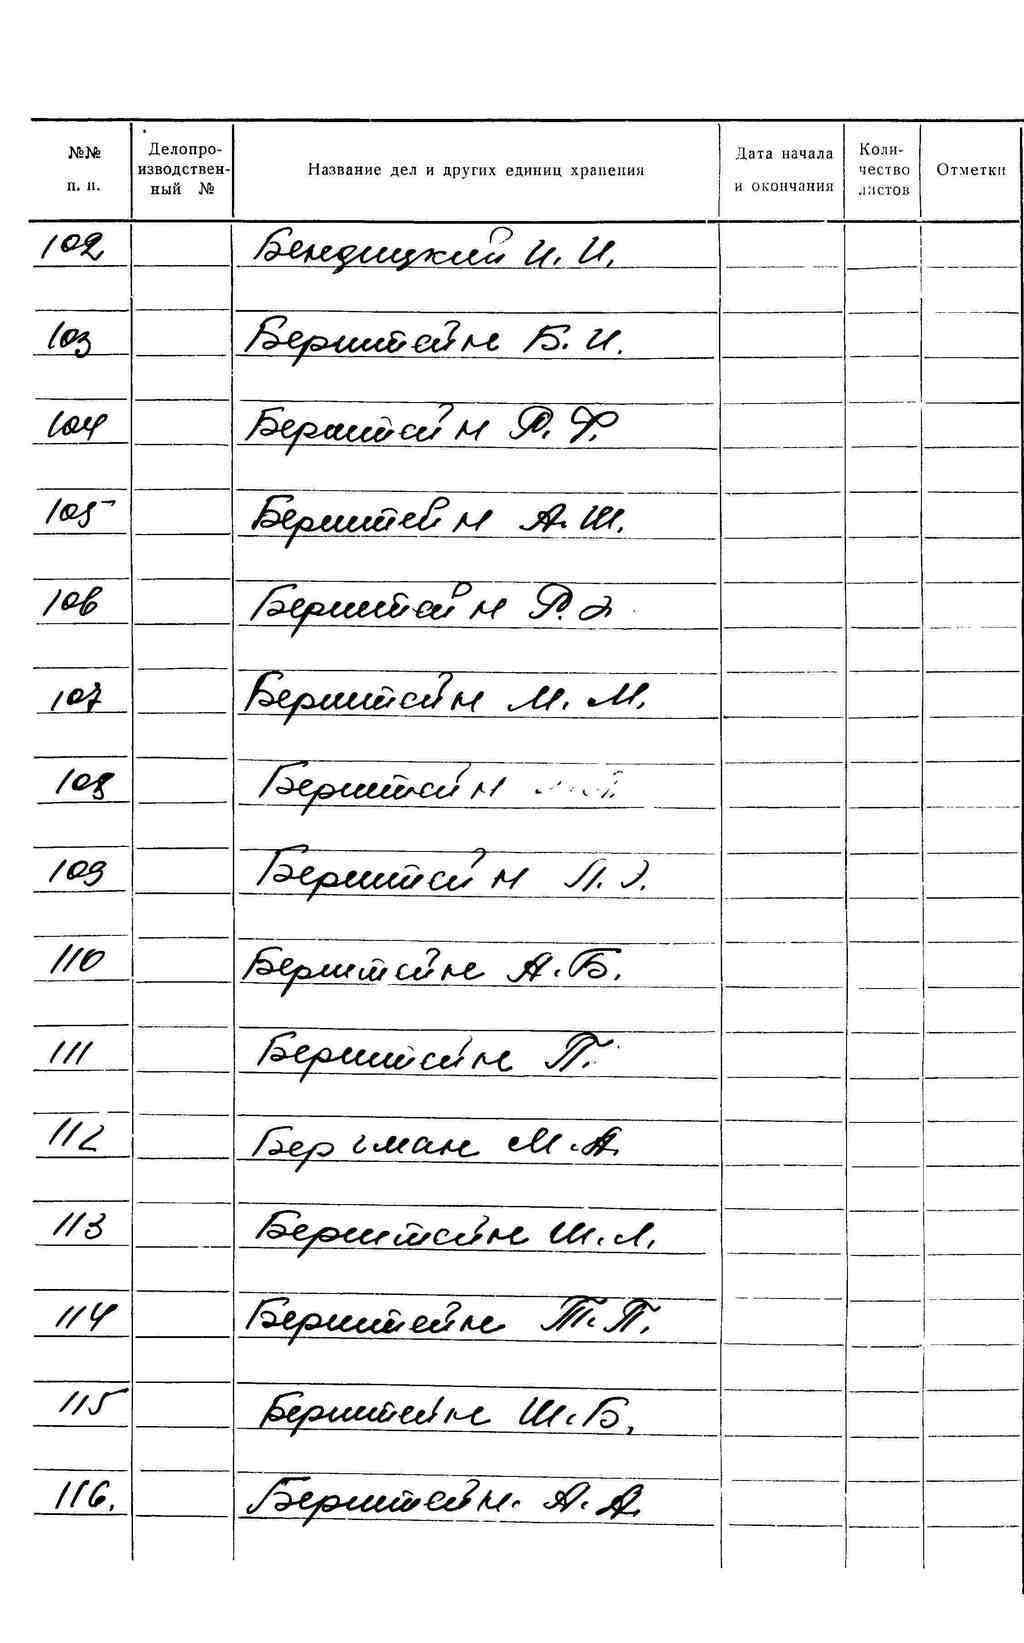 №№ п. п. Делопроизводственный № Название дел и других единиц хранения Дата начала и окончания Количество листов Отметки
102 Бендицкий И. И.
103 Берштейн Б. И.
104 Берштейн Р. Ф.
105 Берштейн А. Ш.
106 Берштейн Р. Э.
107 Берштейн М. М.
108 Берштейн
109 Берштейн Л. Э.
110 Берштейн А. Б.
111 Берштейн П.
112 Бергман М. А.
113 Берштейн Ш. Л.
114 Берштейн Т. П.
115 Берштейн Ш. Б.
116. Берштейн. А. А.